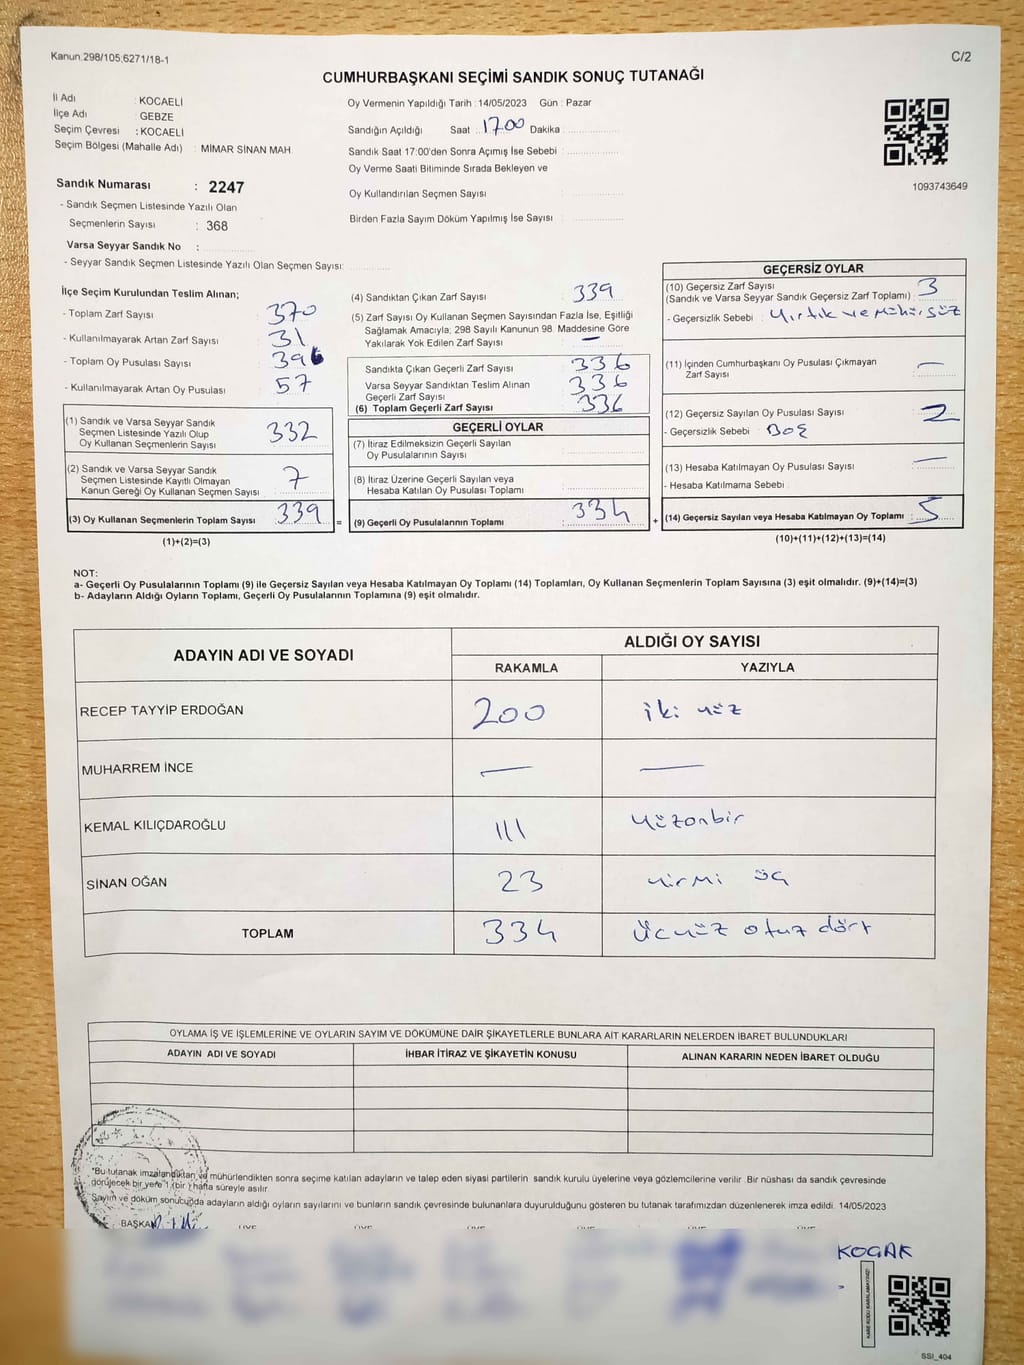 Kanun.298/105,6271/18-1
C/2
CUMHURBAŞKANI SEÇİMİ SANDIK SONUÇ TUTANAĞI
İl Adı : KOCAELİ
İlçe Adı : GEBZE
Seçim Çevresi : KOCAELİ
Seçim Bölgesi (Mahalle Adı) : MİMAR SİNAN MAH.
Sandık Numarası : 2247
- Sandık Seçmen Listesinde Yazılı Olan
Seçmenlerin Sayısı : 368
Varsa Seyyar Sandık No :
- Seyyar Sandık Seçmen Listesinde Yazılı Olan Seçmen Sayısı:
Oy Vermenin Yapıldığı Tarih : 14/05/2023 Gün : Pazar
Sandığın Açıldığı Saat 1700 Dakika
Sandık Saat 17:00'den Sonra Açımış İse Sebebi :
Oy Verme Saati Bitiminde Sırada Bekleyen ve
Oy Kullandırılan Seçmen Sayısı
Birden Fazla Sayım Döküm Yapılmış İse Sayısı :
1093743649
İlçe Seçim Kurulundan Teslim Alınan;
- Toplam Zarf Sayısı : 370
- Kullanılmayarak Artan Zarf Sayısı : 31
- Toplam Oy Pusulası Sayısı : 396
- Kullanılmayarak Artan Oy Pusulası : 57
(1) Sandık ve Varsa Seyyar Sandık
Seçmen Listesinde Yazılı Olup
Oy Kullanan Seçmenlerin Sayısı : 332
(2) Sandık ve Varsa Seyyar Sandık
Seçmen Listesinde Kayıtlı Olmayan
Kanun Gereği Oy Kullanan Seçmen Sayısı : 7
(3) Oy Kullanan Seçmenlerin Toplam Sayısı : 339
(1)+(2)=(3)
(4) Sandıktan Çıkan Zarf Sayısı : 339
(5) Zarf Sayısı Oy Kullanan Seçmen Sayısından Fazla İse, Eşitliği
Sağlamak Amacıyla; 298 Sayılı Kanunun 98. Maddesine Göre
Yakılarak Yok Edilen Zarf Sayısı : —
Sandıkta Çıkan Geçerli Zarf Sayısı : 336
Varsa Seyyar Sandıktan Teslim Alınan
Geçerli Zarf Sayısı : 336
(6) Toplam Geçerli Zarf Sayısı : 336
GEÇERLİ OYLAR
(7) İtiraz Edilmeksizin Geçerli Sayılan
Oy Pusulalarının Sayısı :
(8) İtiraz Üzerine Geçerli Sayılan veya
Hesaba Katılan Oy Pusulası Toplamı :
= (9) Geçerli Oy Pusulalarının Toplamı : 334
GEÇERSİZ OYLAR
(10) Geçersiz Zarf Sayısı
(Sandık ve Varsa Seyyar Sandık Geçersiz Zarf Toplamı) : 3
- Geçersizlik Sebebi : Yırtık ve Mühürsüz
(11) İçinden Cumhurbaşkanı Oy Pusulası Çıkmayan
Zarf Sayısı : —
(12) Geçersiz Sayılan Oy Pusulası Sayısı : 2
- Geçersizlik Sebebi : BOŞ
(13) Hesaba Katılmayan Oy Pusulası Sayısı : —
- Hesaba Katılmama Sebebi :
+ (14) Geçersiz Sayılan veya Hesaba Katılmayan Oy Toplamı : 5
(10)+(11)+(12)+(13)=(14)
NOT:
a- Geçerli Oy Pusulalarının Toplamı (9) ile Geçersiz Sayılan veya Hesaba Katılmayan Oy Toplamı (14) Toplamları, Oy Kullanan Seçmenlerin Toplam Sayısına (3) eşit olmalıdır. (9)+(14)=(3)
b- Adayların Aldığı Oyların Toplamı, Geçerli Oy Pusulalarının Toplamına (9) eşit olmalıdır.
ADAYIN ADI VE SOYADI
ALDIĞI OY SAYISI
RAKAMLA YAZIYLA
RECEP TAYYİP ERDOĞAN 200 iki yüz
MUHARREM İNCE — —
KEMAL KILIÇDAROĞLU 111 yüzonbir
SİNAN OĞAN 23 yirmi üç
TOPLAM 334 Üçyüz otuz dört
OYLAMA İŞ VE İŞLEMLERİNE VE OYLARIN SAYIM VE DÖKÜMÜNE DAİR ŞİKAYETLERLE BUNLARA AİT KARARLARIN NELERDEN İBARET BULUNDUKLARI
ADAYIN ADI VE SOYADI İHBAR İTİRAZ VE ŞİKAYETİN KONUSU ALINAN KARARIN NEDEN İBARET OLDUĞU
*Bu tutanak imzalandıktan ve mühürlendikten sonra seçime katılan adayların ve talep eden siyasi partilerin sandık kurulu üyelerine veya gözlemcilerine verilir. Bir nüshası da sandık çevresinde
görülecek bir yere 1 (bir) hafta süreyle asılır.
Sayım ve döküm sonucunda adayların aldığı oyların sayılarını ve bunların sandık çevresinde bulunanlara duyurulduğunu gösteren bu tutanak tarafımızdan düzenlenerek imza edildi. 14/05/2023
BAŞKAN ÜYE ÜYE ÜYE ÜYE ÜYE ÜYE
KOÇAK
KARE KODU KARALAMAYINIZ!
SSI_404